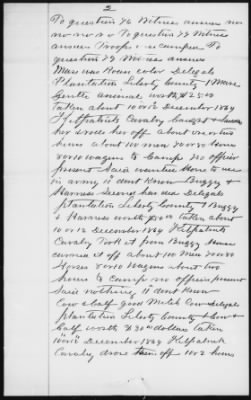 2
To question 76 Witness answer no
no no no no To question 77 Witness
answer Troops in campm To
question 79 Witness answers
Mare was Roan color Delegals
Plantation Liberty County 1 Mare
Gentle animal worth $250
taken about 10 or 12 December 1864
Kilpatricks Cavalry caught &
her & rode her off about one or two
hours about 100 men 70 or 80 Horses
8 or 10 wagons to Camp no officer
present Said nothing Horse to use
in army I dont Know Buggy &
Harness second hand Delegals
plantation Liberty County 1 Buggy
& Harness worth taken about
10 or 12 December 1864 Kilpatrick
Cavalry Took it from Buggy House
carried it off about 100 Men 70 or 80
Horses 8 or 10 Wagons about two
hours to camp no officer present
Said nothing I dont Know
Cow & Calf good Milch Cow Delegals
plantation Liberty County 1 Cow &
Calf worth $20 dollars taken
"10 or 12" December 1864 Kilpatrick
Cavalry drove them off 1 or 2 hours